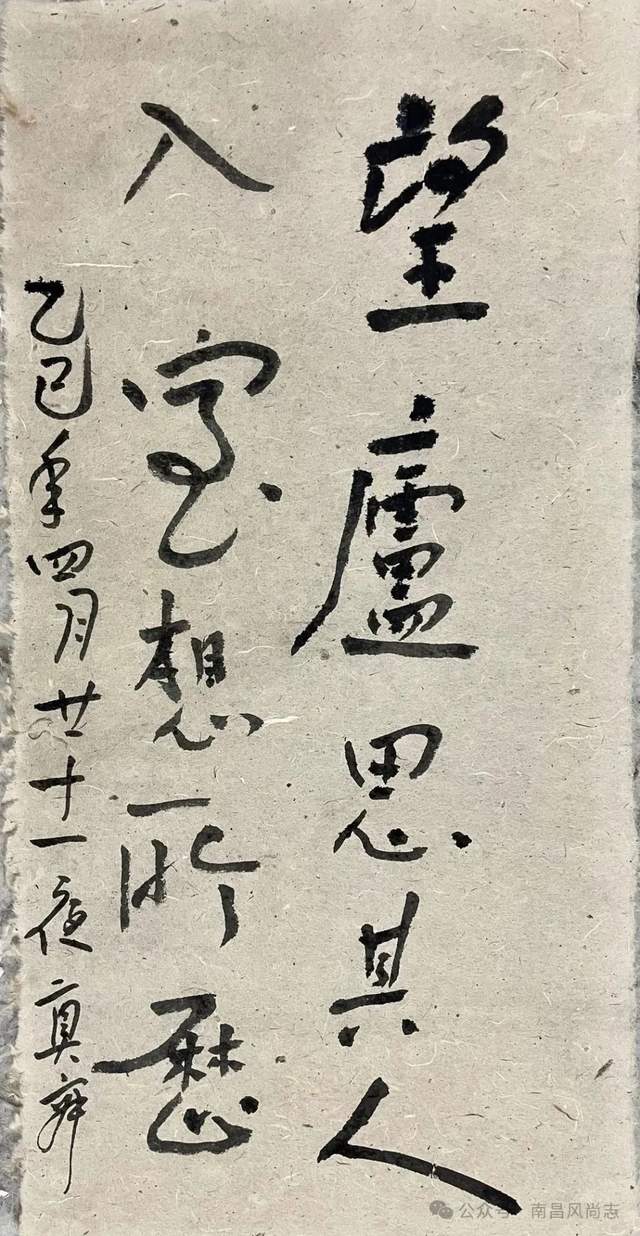 望廬思其人
入室想所歷
乙巳年四月廿十一夜真
公众号·南昌风尚志